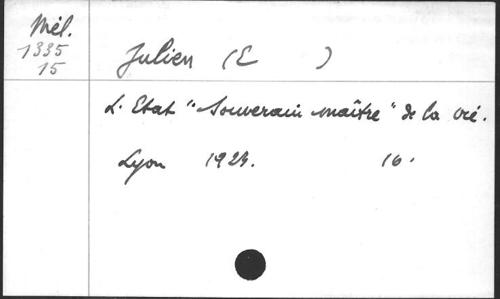 Mél.
1335
15
Julien (E )
L'Etat "Souverain maître" de la vie.
Lyon 1924. 16.